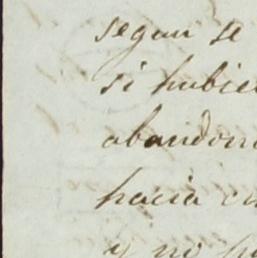 segun se
si hubie
abandon
hacia
y no